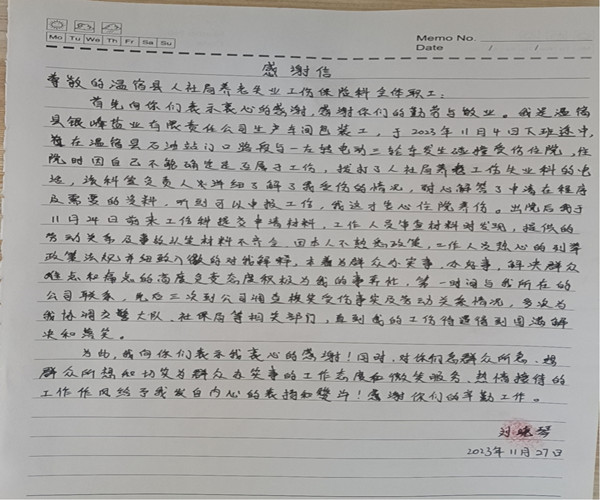 Mo Tu We Th Fr Sa Su
Memo No.
Date / /
感谢信
尊敬的温宿县人社局养老失业工伤保险科全体职工:
首先向你们表示衷心的感谢,感谢你们的勤劳与敬业。我是温宿
县银峰盐业有限责任公司生产车间包装工,于2023年11月4日下班途中,
在温宿县石油站门口路段与一左转电动三轮车发生碰撞受伤住院,住
院时因自己不能确定是否属于工伤,拨打了人社局养老工伤失业科的电
话,该科室负责人员详细了解了我受伤的情况,耐心解答了申请在程序
及需要的资料,听到可以申报工伤,我这才安心住院养伤。出院后我于
11月24日前来工伤科提交申请材料,工作人员审查材料时发现,提供的
劳动关系及事故发生材料不齐全,因本人不熟悉政策,工作人员热心的列举
政策法规并细致入微的对我解释,本着为群众办实事、办好事,解决群众
难点和痛点的高度负责态度积极为我的事奔忙,第一时间与我所在的
公司联系,先后三次到公司调查核实受伤事实及劳动关系情况,多次为
我协调交警大队、社保局等相关部门,直到我的工伤待遇得到圆满解
决和落实。
为此,我向你们表示我衷心的感谢!同时,对你们急群众所急、想
群众所想和切实为群众办实事的工作态度和微笑服务、热情接待的
工作作风给予我发自内心的表扬和赞许!感谢你们的辛勤工作。
2023年11月27日